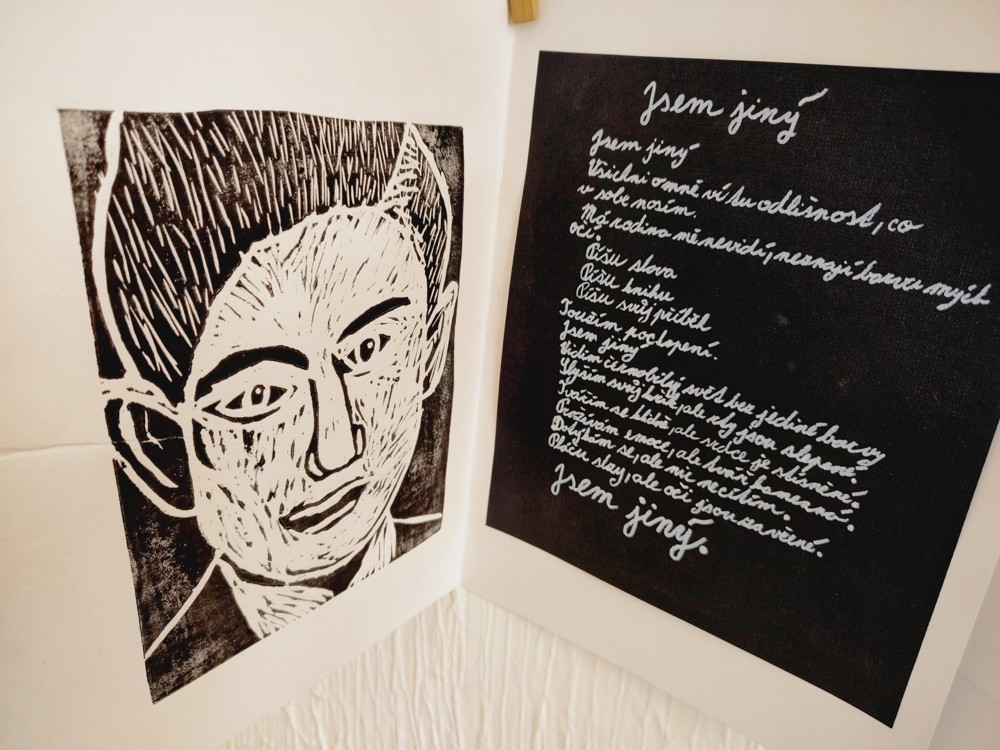 Jsem jiný
Jsem jiný
Všichni omně ví tu odlišnost, co
v sobe nosím.
Má rodina mě nevidí, neznají barvu mých
očí.
Píšu slova
Píšu knihu
Píšu svůj příběh
Toužím pochopení.
Jsem jiný
Vidím černobílý svět bez jediné barvy
Slyším svůj hlas, ale rty jsou slepené.
Tvářím se klidně, ale srdce je stisněné.
Prožívám emoce, ale tvář kamenná.
Dotýkám se, ale nic necítím.
Pláču slzy, ale oči jsou zavřené.
Jsem jiný.